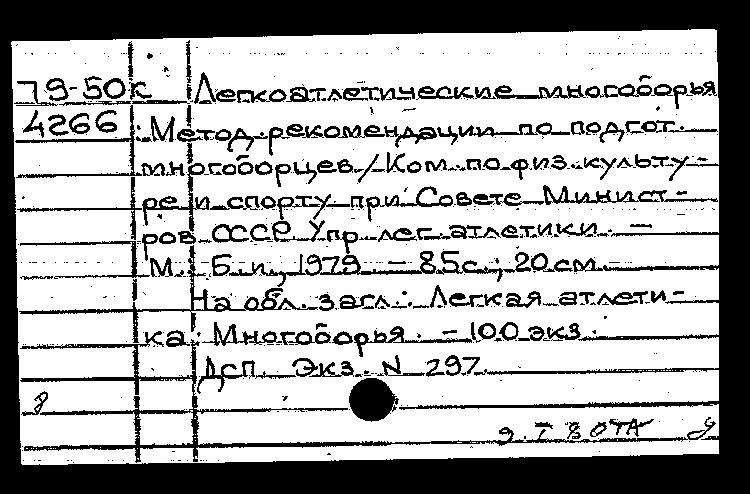 79-50к Легкоатлетические многоборья
4266 : Метод. рекомендации по подгот.
многоборцев / Ком. по физ. культу-
ре и спорту при Совете Минист-
ров СССР. Упр. лег. атлетики. —
М. : Б. и., 1979. - 85с. ; 20 см.
На обл. загл.: Легкая атлети-
ка: Многоборья. - 100 экз.
Дсп. Экз. N 297.